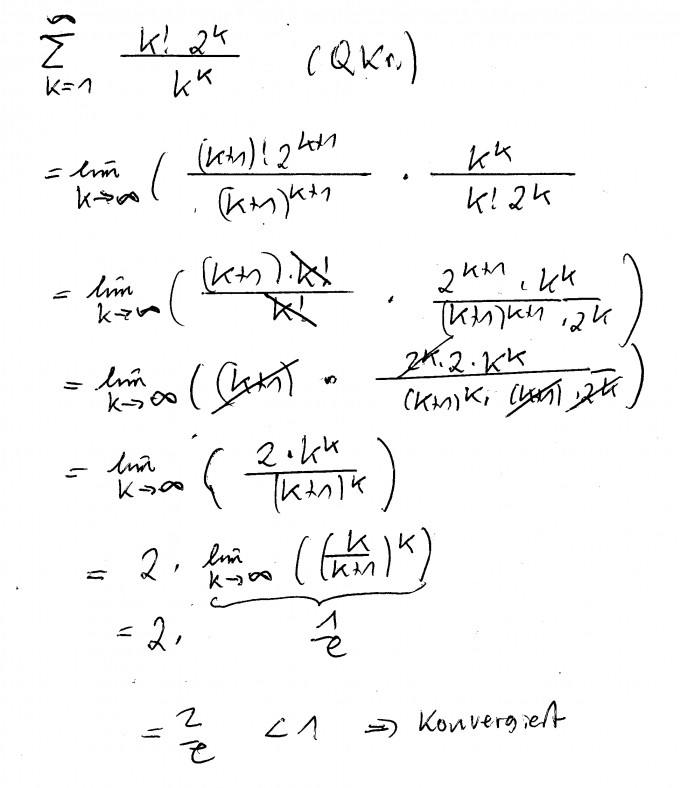 ∞∑k=1 k! 2^k / k^k (QKr.)
= lim k→∞ ( (k+1)! 2^(k+1) / (k+1)^(k+1) · k^k / k! 2^k
= lim k→∞ ( (k+1)·k! / k! · 2^(k+1) · k^k / (k+1)^(k+1) · 2^k )
= lim k→∞ ( (k+1) · 2^k · 2 · k^k / (k+1)^k · (k+1) · 2^k )
= lim k→∞ ( 2 · k^k / (k+1)^k )
= 2 · lim k→∞ ( (k / k+1)^k )
= 2 · 1/e
= 2/e < 1 ⇒ Konvergiert